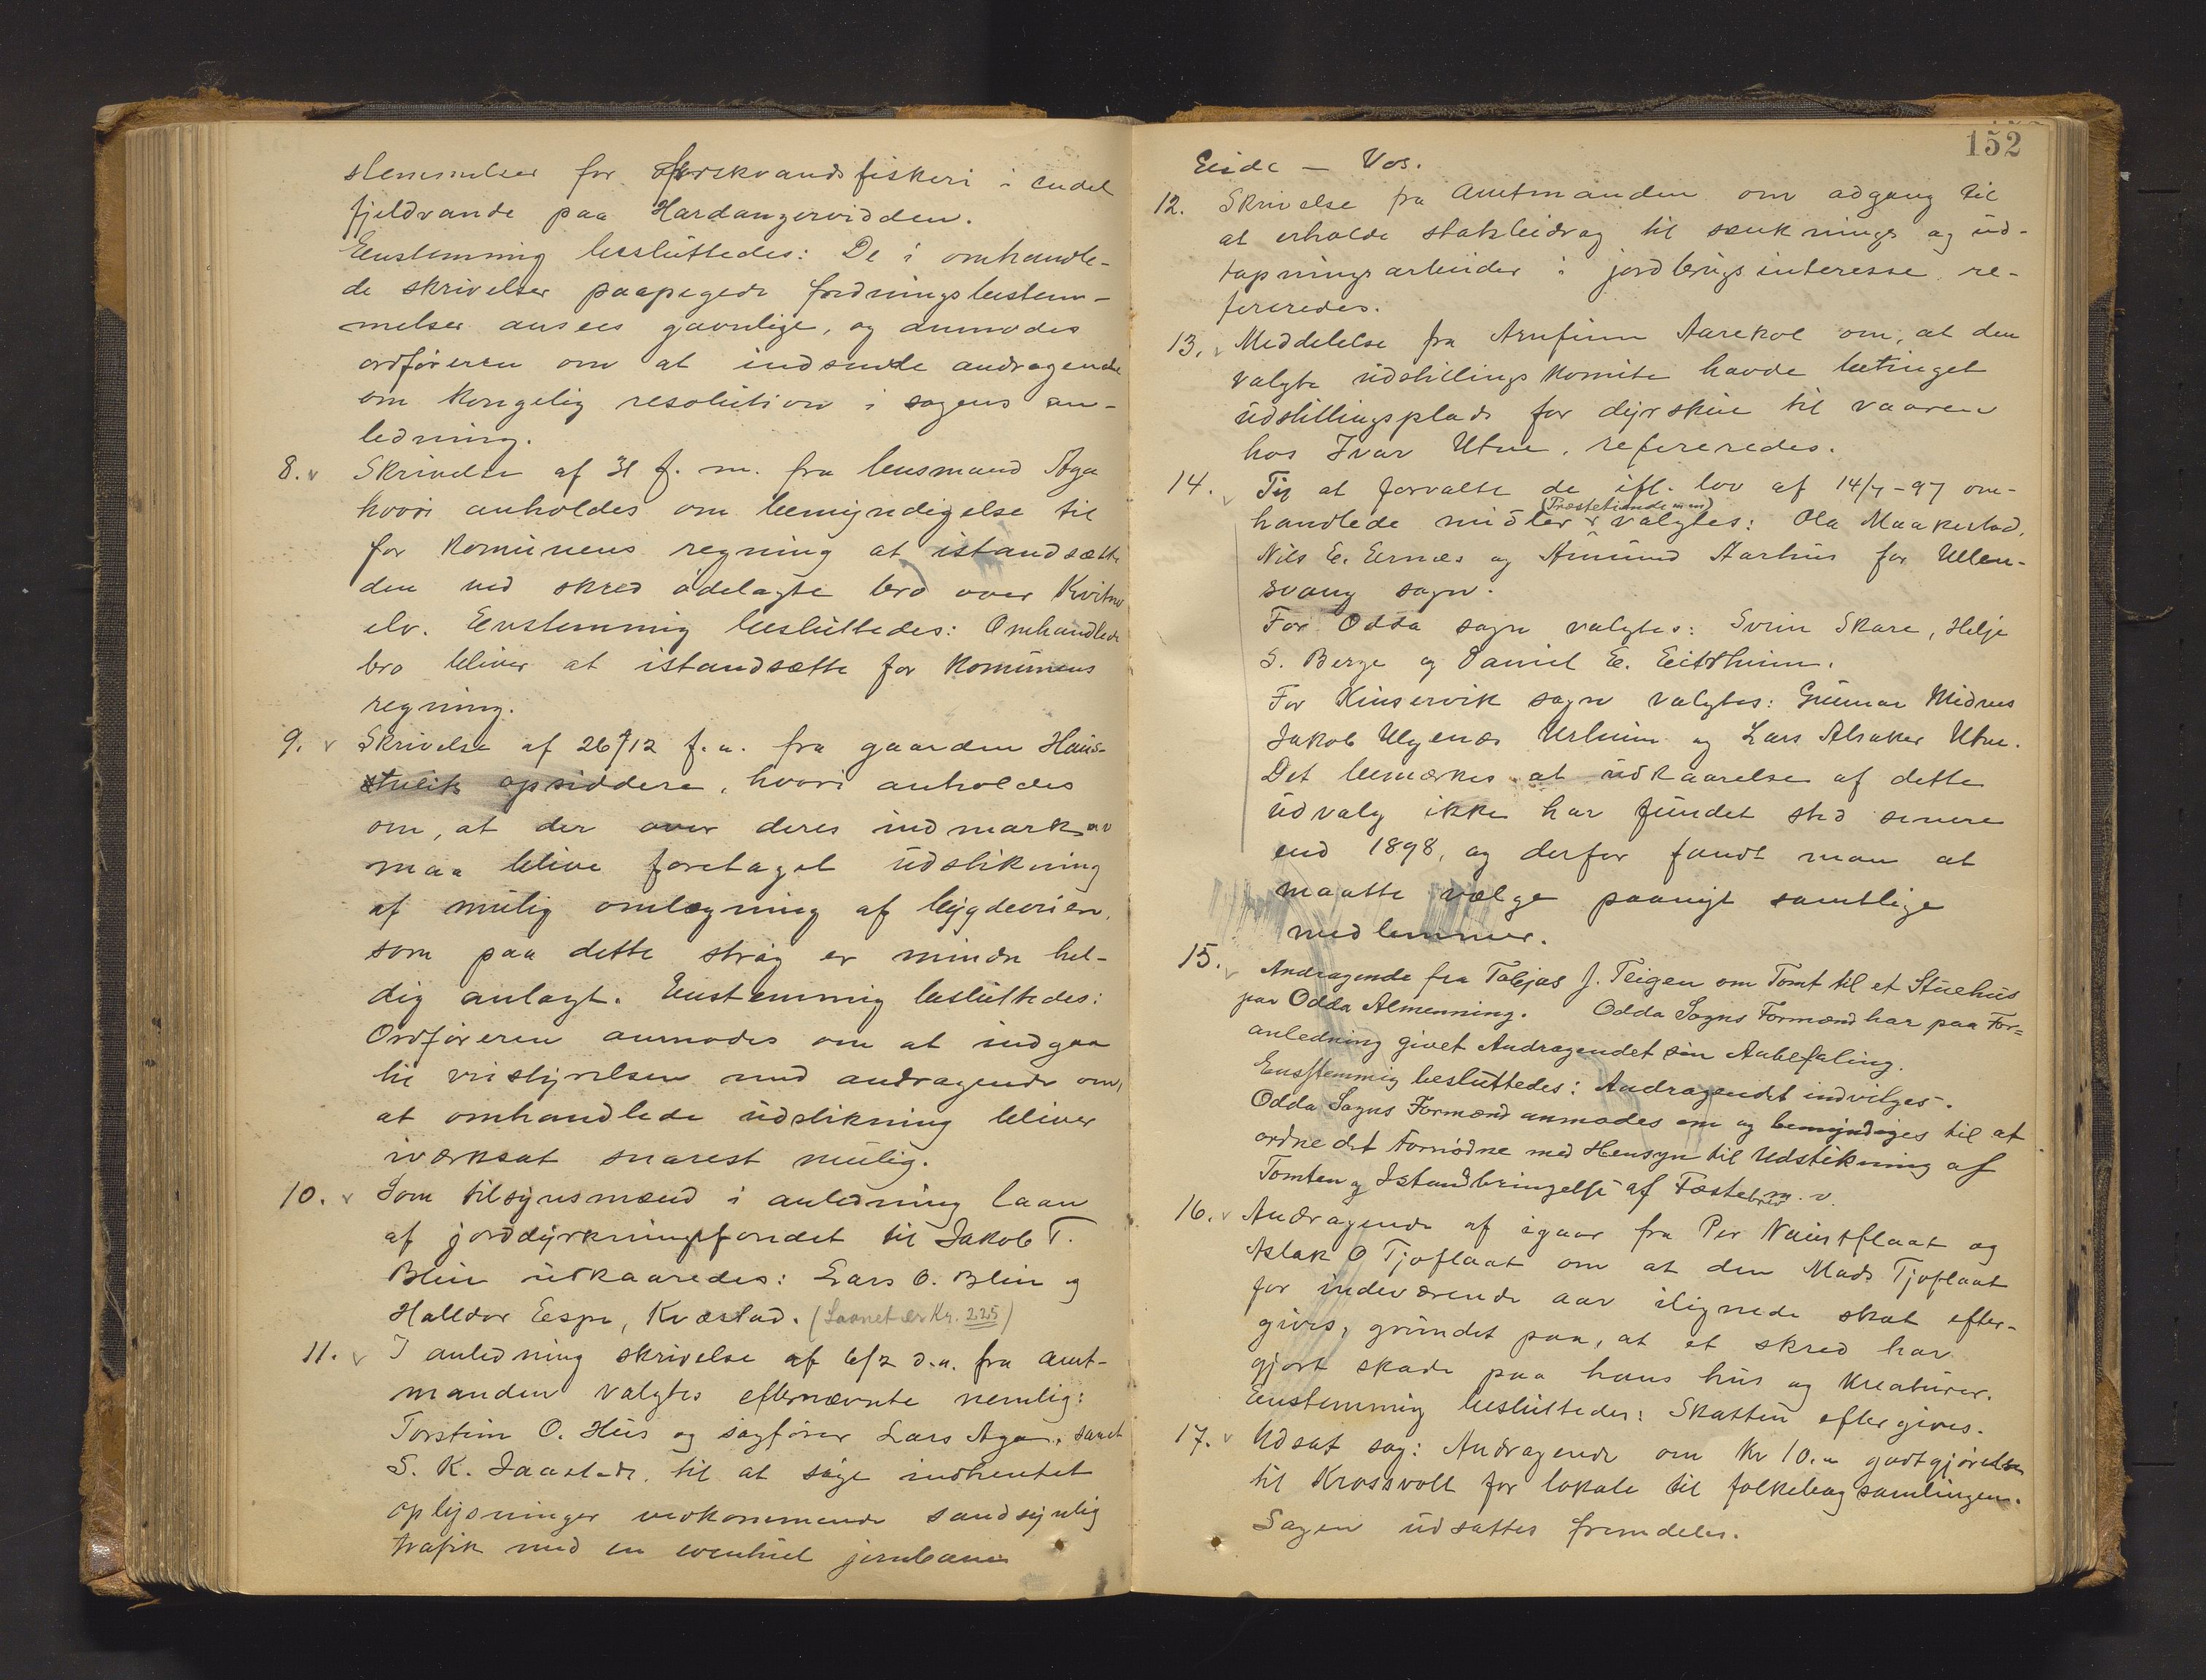 stemmelser for ferskvandsfiskeri i endel
fjeldvande paa Hardangervidden.
Eenstemmig besluttedes: De i omhandle-
de skrivelser paapegede fredningsbestem-
melser ansees gavnlige, og anmodes
ordføreren om at indsende andragende
om Kongelig resolution i sagens an-
ledning.
8. v Skrivelse af 31 f. m. fra lensmand Aga
hvori anholdes om bemyndigelse til
for Komunens regning at istandsætte
den ved skred ødelagte bro over Kvitno
elv. Eenstemmig besluttedes: Omhandlede
bro bliver at istandsætte for Komunens
regning.
9. v Skrivelse af 26/12 f. a. fra gaarden Haus-
opsiddere, hvori anholdes
om, at der over deres indmark
maa blive foretaget udstikning
af mulig omlægning af bygdeveien,
som paa dette strøg er mindre hel-
dig anlagt. Eenstemmig besluttedes:
Ordføreren anmodes om at indgaa
til veistyrelsen med andragende om,
at omhandlede udstikning bliver
iværksat snarest mulig.
10. v Som tilsynsmænd i anledning laan
af jorddyrkningsfondet til Jakob T.
Bleie udkaaredes: Lars O. Bleie og
Halldor Espe, Kvæstad. (Laanet er Kr. 225)
11. v I anledning skrivelse af 6/2 d. a. fra amt-
manden valgtes efternævnte nemlig:
Torstein O. Hus og sagfører Lars Aga, samt
S. K. Jaastad, til at søge indhentet
oplysninger vedkommende sandsynlig
trafik med en eventuel jernbane
152
Eide - Vos.
12. Skrivelse fra Amtmanden om adgang til
at erholde statsbidrag til sænknings og ud-
tapningsarbeider i jordbrugsinteresse re-
fereredes.
13. v Meddelelse fra Arnfinn Aarekol om, at den
valgte udstillings Komite havde betinget
udstillingsplads for dyrskue til vaaren
hos Ivar Utne, refereredes.
14. v Til at forvalte de ifl. lov af 14/7-97 om-
(Præstetiendemænd)
handlede midler valgtes: Ola Maakestad,
Nils E. Ernæs og Amund Aarhus for Ullen-
svang sogn.
For Odda sogn valgtes: Svein Skare, Helje
S. Berge og Daniel E. Eitrheim.
For Kinservik sogn valgtes: Gunnar Midnes
Jakob Ulgenæs Urheim og Lars Alsaker Utne.
Det bemerkes at udkaarelse af dette
udvalg ikke har fundet sted senere
end 1898, og derfor fandt man at
maatte vælge paanyt samtlige
medlemmer.
15. v Andragende fra Toljas J. Teigen om Tomt til et Stuehus
paa Odda Almenning. Odda Sogns Formænd har paa For=
anledning givet Andragendet sin Anbefaling.
Eensstemmig besluttedes: Andragendet indvilges.
Odda Sogns Formænd anmodes om og bemyndiges til at
ordne det Fornødne med Hensyn til Udstikning af
Tomten og Istandbringelse af Fæstebrev m. v.
16. v Andragende af igaar fra Per Naustflaat og
Aslak O Tjoflaat om at den Mads Tjoflaat
for indeværende aar ilignede skat efter-
gives, grundet paa, at et skred har
gjort skade paa hans hus og Kreaturer.
Eenstemmig besluttedes: Skatten eftergives.
17. v Udsat sag: Andragende om Kr 10.- godtgjørelse
til Krossvoll for lokale til folkebogsamlingen.
Sagen udsattes fremdeles.